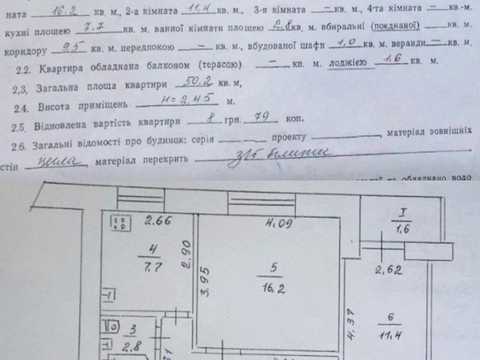 ната 16.2 кв. м, 2-а кімната 11,4 кв. м., 3-я кімната — кв. м, 4-та кімната — кв.-м.
кухні площею 7.7 кв. м. ванної кімнати площею 2.8 кв. м, вбиральні (поєднаної) кв. м.
коридору 9,5 кв. м. передпокою — кв. м, вбудованої шафи 1,0 кв. м. веранди — кв. м,
2.2. Квартира обладнана балконом (терасою) — кв. м. лоджією 1.6 кв. м.
2,3, Загальна площа квартири 50.2 кв. м,
2.4. Висота приміщень H=2,45 м.
2.5. Відновлена вартість квартири 8 грн. 79 коп.
2.6. Загальні відомості про будинок: серія проекту матеріал зовнішніх
стін цегла матеріал перекрить з/б плити
та обладнано водо
2.66
4.09
I
1.6
4
7.7
2.90
3.95
5
16.2
2,62
4.37
6
11.4
3
2.8